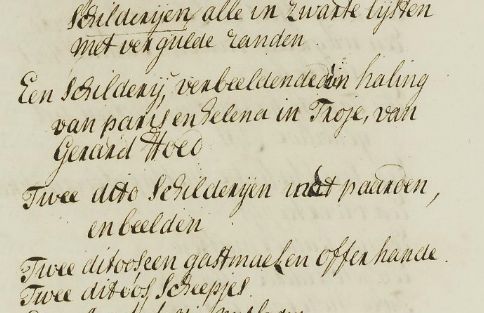 Schilderijen alle in zwarte lijsten
met vergulde randen
Een Schilderij, verbeeldende de in haling
van paris en helena in Troje, van
Gerard Hoed
Twee ditto Schilderijen met paarden,
en beelden
Twee ditoos een gastmael en offerhande.
Twee ditoos Scheepjes